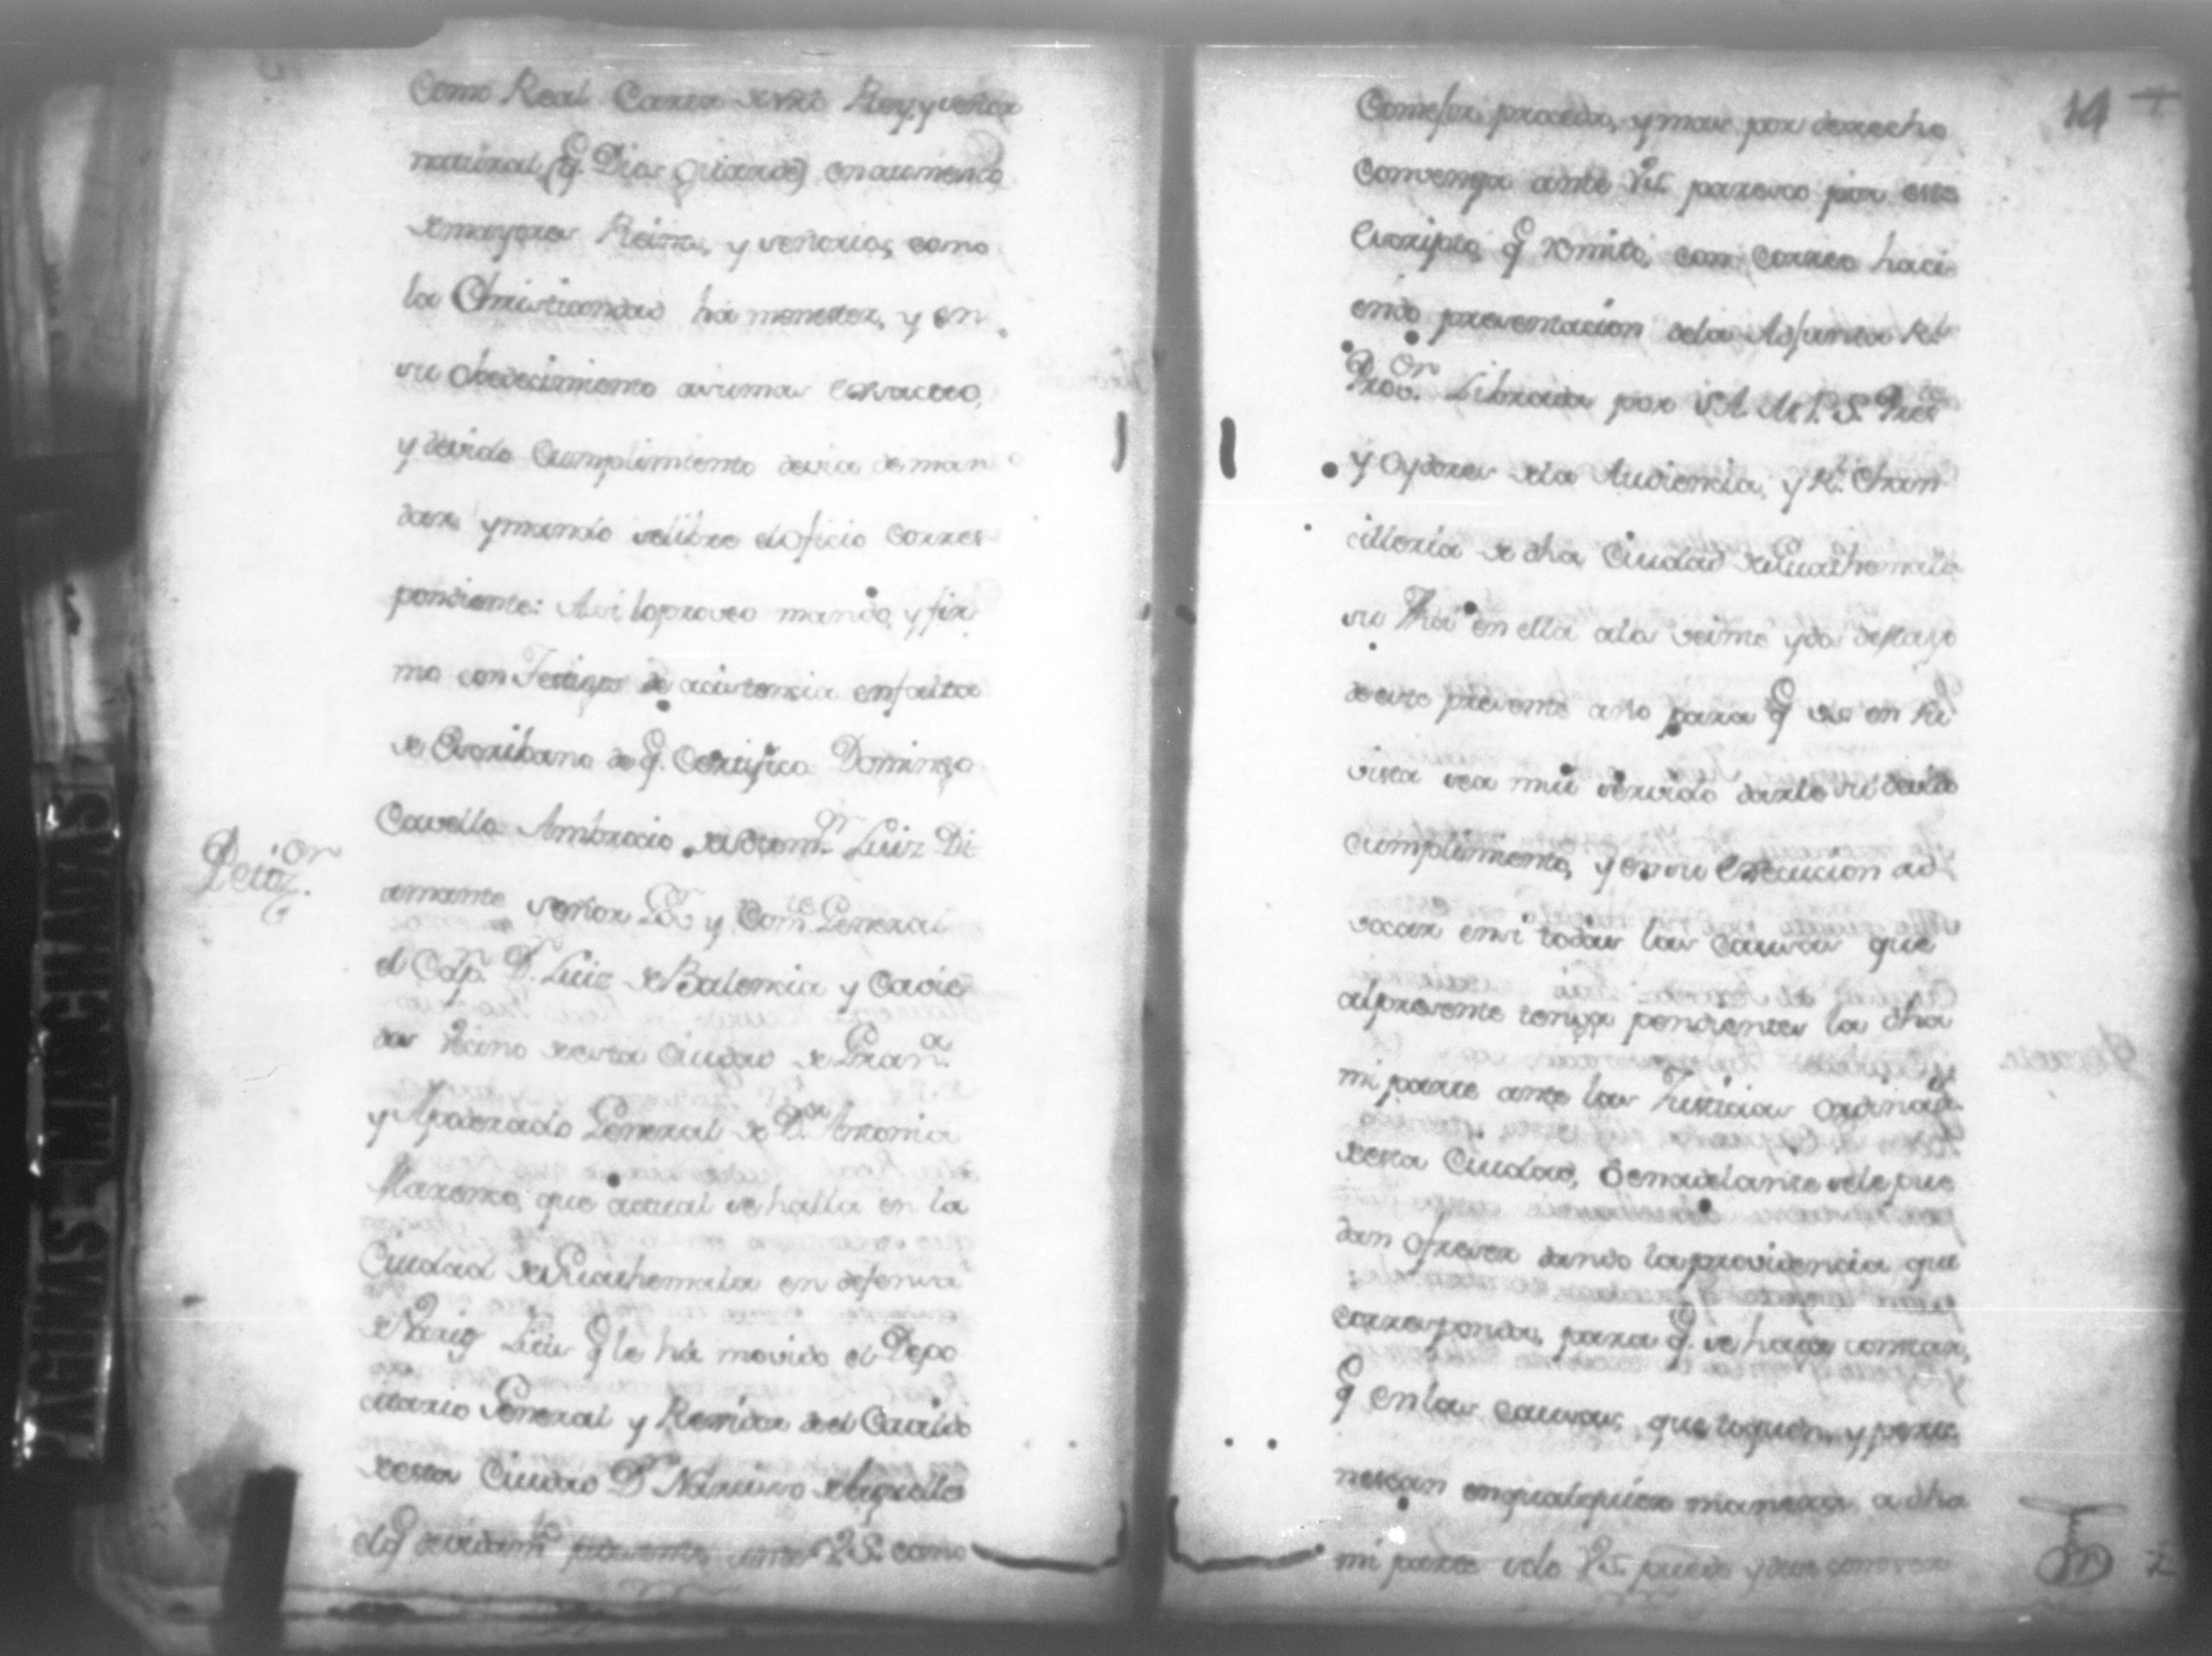 Como Real Carta de nro Rey, y señor
natural (q̃. Dios guarde) en aumento
de mayores Reinos, y señorios, como
la Christiandad ha menester, y en
su obedecimiento a su mas exacto,
y devido Cumplimiento devia de man
dar, y mando se libre el oficio corres
pondiente: Asi lo proveo mando, y fir
mo con Testigos de acistencia en falta
de Escribano de q̃. Certifico Domingo
Cavello Ambrocio de Luiz Di
Petiz.on
amante señor Gov y Comte General
el Cap. Dn. Luiz de Balencia y Cavie
das Vecino de esta Ciudad de Grana.
y Apoderado General de Da. Antonia
Marenco, que actual se halla en la
Ciudad de Guathemala en defensa
de Litis q̃ le há movido el Depo
citario General y Rexidor de el Cavildo
de esta Ciudad Dn Narciso de Arguello
el q̃ devidamte presento ante V.S. como
19
proceda, y mas por derecho
Convenga ante V.S. paresco por este
Escripto, q̃ remito, con correo haci
endo presentacion de la Adjunta Rl
Provon. Librada por S A M. P. S. Preste
y Oydores de la Audiencia, y Rl. Chan
cilleria de dha Ciudad de Guathemala
su fha en ella a los veinte y dos de
de este presente año para q̃ V.S. en su
vista sea mui servido darle su devido
cumplimiento, y en su Execucion ad
vocar en si todas las Causas que
al presente tenga pendientes la dha
mi parte ante las Justicias Ordinas.
de esta Ciudad, ó en adelante se le pue
dan ofrecer dando la providencia que
corresponda, para q̃. se haga constar,
q̃ en las causas, que toquen, y perte
nescan en qualquier manera a dha
mi parte solo V.S. puede y deve conocer
PAGINAS MANCHADAS